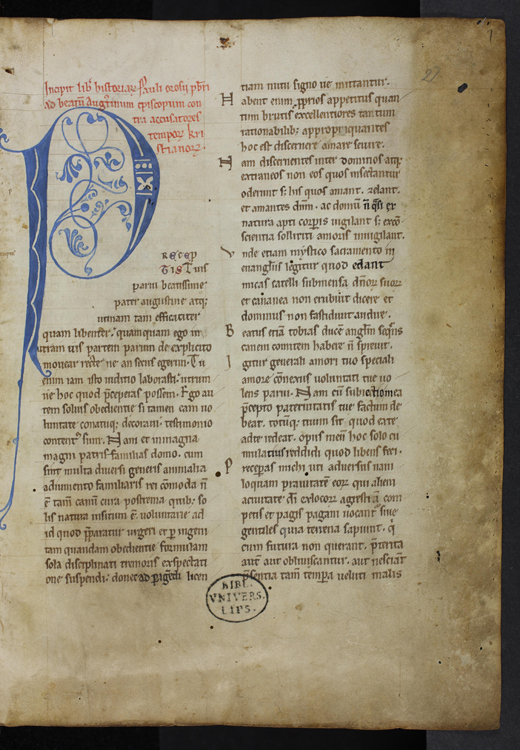 Incipit lib' historiar. Pauli orosii pb'ri
ad beatū augustinum episcopum con
tra accusatores
temporū Kri
stianorꝝ.
PRECEP
TIS Tuis
parui beatissime
pater augustine atq;
utinam tam efficaciter
quam libenter. quamquam ego in
utram uis partem parum de explicito
mouear recte ne an secus egerim. Tu
enim iam isto iuditio laborasti. utrum
ne hoc quod p̄ciperes possem. Ego au
tem solius obedientie si tamen eam uo
luntate conatuq; decoraui. testimonio
contentꝰ sum. Nam et in magna
magni patris familias domo. cum
sint multa diuersi generis animalia
adiumento familiaris rei cōmoda n̄
ē tam̄ canū cura postrema. quib; so
lis natura insitum ē. uoluntarie ad
id quod p̄parātur urgeri et ꝑ ingeni
tam quandam obedientie formulam
sola disciplinati timoris exspectati
one suspendi. donec ad ꝑagēdi licen
tiam nutu signo ue mittantur.
Habent enim ꝓprios appetitus quan
tum brutis excellentiores tantum
rationabilib; appropinquantes
hoc est discernere amare seruire.
Nam discernentes inter dominos atq;
extraneos non eos quos insectantur
oderunt s; his quos amant. zelant.
et amantes dn̄m. ac domū n̄ q̄si ex
natura apti corꝑis uigilant s; ex cō
scientia solliciti amoris inuigilant.
Vnde etiam mystico sacramento in
euangliis legitur quod edant
micas catelli sub mensa dn̄orū suorū
et cananea non erubuit dicere et
dominus non fastidiuit audire.
Beatus etiā tobias ducē angl'm seq̄ns
canem comitem habere n̄ spreuit.
Igitur generali amori tuo speciali
amore cōnexus uoluntati tue uo
lens parui. Nam cū subiectio mea
p̄cepto paternitatis tue factum de
beat. totūq; tuum sit quod ex te
ad te redeat. opus meū hoc solo cu
mulatius reddidi quod libens feci.
Preceperas michi uti aduersus uani
loquam prauitatē eorū qui alieni
a ciuitate d'i ex locorū agrestiū com
petis et pagis pagani uocantur siue
gentiles quia terrena sapiunt. q'
cum futura non querant. p̄terita
aut' aut obliuiscantur. aut nesciant
p̄sentia tam̄ tempora ueluti malis
BIBL.
VNIVERS.
LIPS.